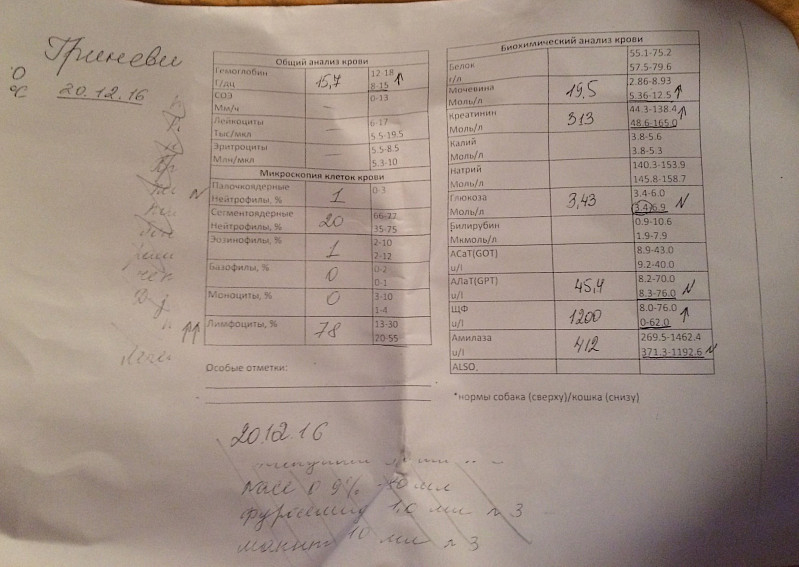 20.12.16
Общий анализ крови
Гемоглобин 15,7 12-18
Г/дц 8-15 ↑
СОЭ — 0-13
Мм/ч
Лейкоциты — 6-17
Тыс/мкл 5.5-19.5
Эритроциты — 5.5-8.5
Млн/мкл 5.3-10
Микроскопия клеток крови
Палочкоядерные 1 0-3
N Нейтрофилы, %
Сегментоядерные 20
Нейтрофилы, % 35-75
Эозинофилы, % 1 2-10
2-12
Базофилы, % 0 0-2
0-1
Моноциты, % 0 3-10
1-4
↑↑ Лимфоциты, % 78 13-30
20-55
Особые отметки:
Биохимический анализ крови
Белок 55.1-75.2
г/л 57.5-79.6
Мочевина 19,5 2.86-8.93
Моль/л 5.36-12.5 ↑
Креатинин 313 44.3-138.4
Моль/л 48.6-165.0 ↑
Калий 3.8-5.6
Моль/л 3.8-5.3
Натрий 140.3-153.9
Моль/л 145.8-158.7
Глюкоза 3,43 3.4-6.0
Моль/л 3.4-6.9 N
Билирубин 0.9-10.6
Мкмоль/л 1.9-7.9
АСаТ(GOT) 8.9-43.0
u/l 9.2-40.0
АЛаТ(GPT) 45,4 8.2-70.0
u/l 8.3-76.0 N
ЩФ 1200 8.0-76.0
u/l 0-62.0 ↑
Амилаза 412 269.5-1462.4
u/l 371.3-1192.6 N
ALSO.
*нормы собака (сверху)/кошка (снизу)
20.12.16
NaCl 0 9% мл
1,0 мл n 3
10 мл n 3